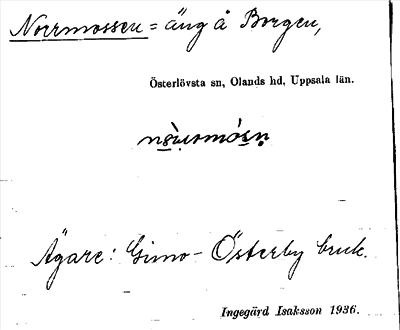 Norrmossen = äng å Borgen,
Österlövsta sn, Olands hd, Uppsala län.
Ägare: Gimo-Österby bruk.
Ingegärd Isaksson 1936.